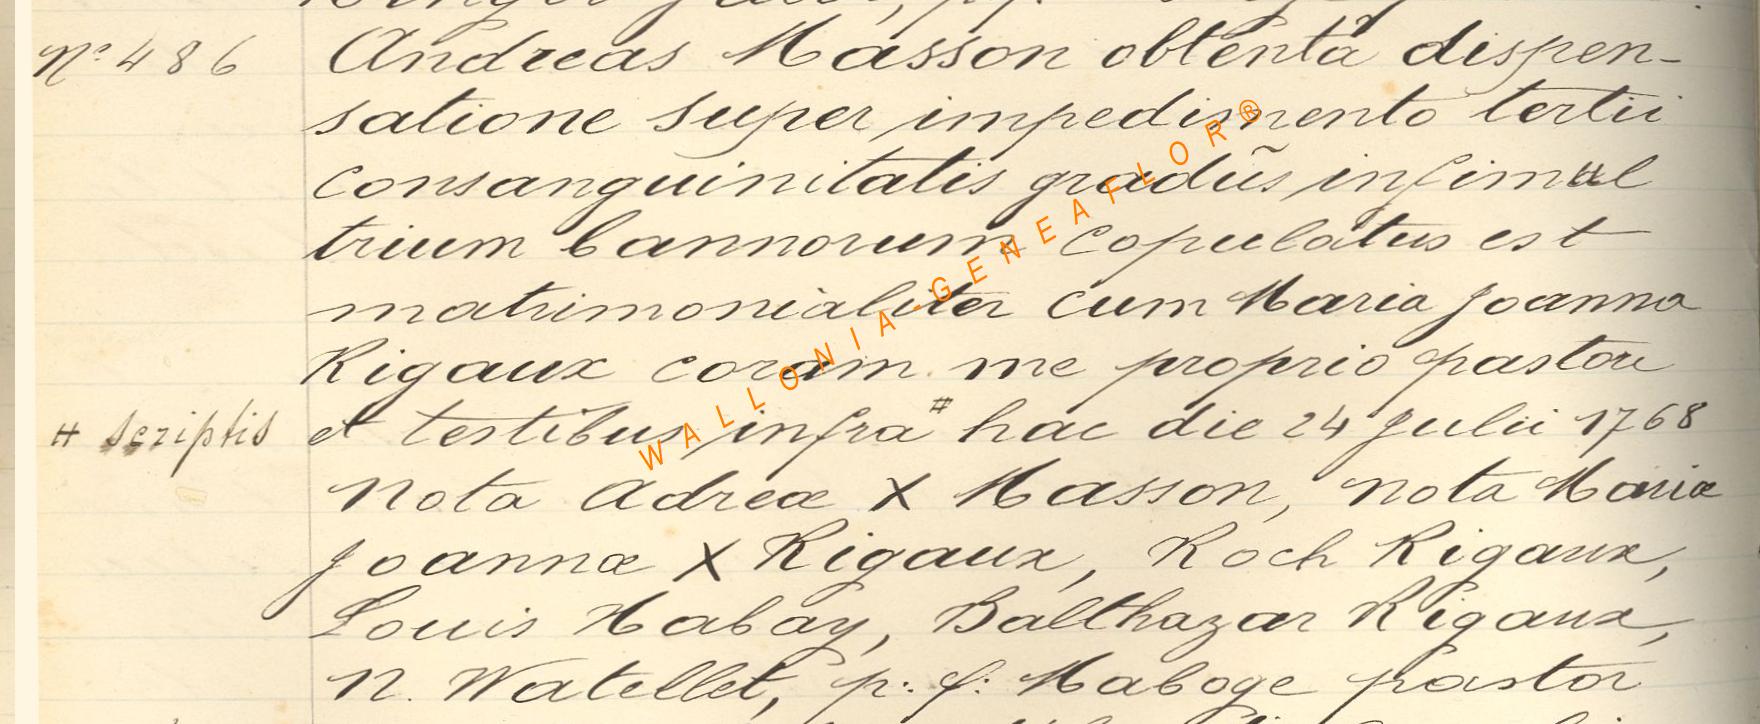 Nº 486
Andreas Masson obtentâ dispen-
satione super impedimento tertii
consanguinitatis gradûs, insimul
trium bannorum copulatus est
matrimonialiter cum Maria Joanna
Rigaux coram me proprio pastore
et testibus infra # hac die 24 Julii 1768
# scriptis
nota Adreæ X Masson, nota Mariæ
Joannæ X Rigaux, Roch Rigaux,
Louis Habay, Balthazar Rigaux,
N. Watellet, p: f: Maboge pastor
WALLONIA-GENEAFLOR®